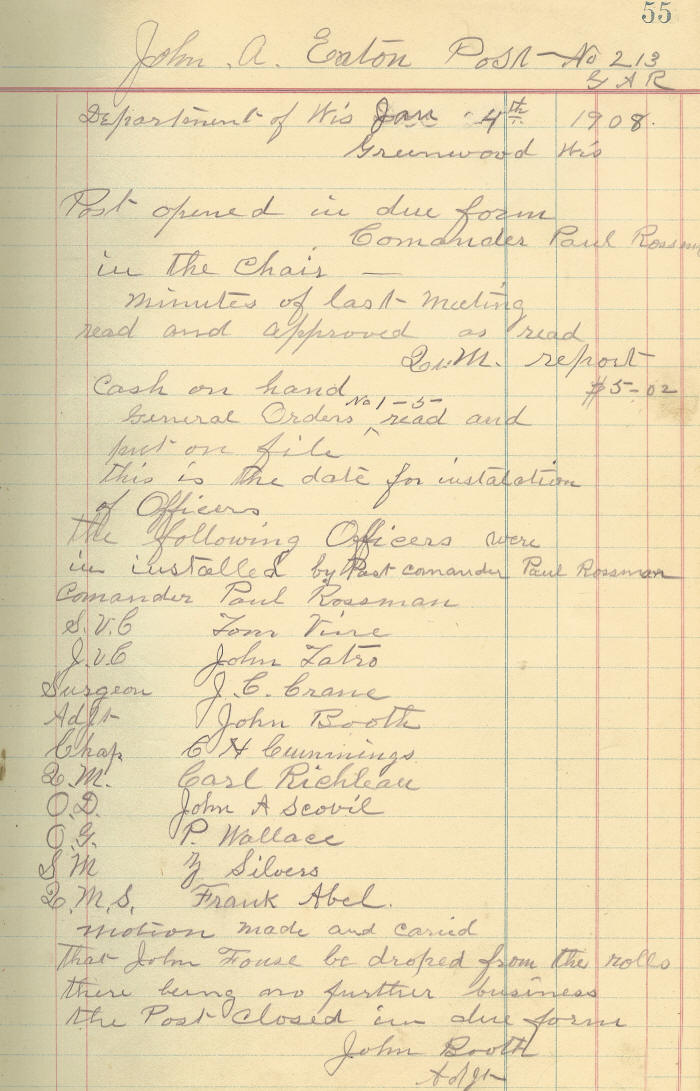 55
John A. Eaton Post No 213
G A R
Department of Wis Jan 4th 1908.
Greenwood Wis
Post opened in due form
Comander Paul Rossm
in the Chair —
minutes of last meeting
read and approved as read
Q.M. report
Cash on hand $5-02
No 1-5-
General Orders ^ read and
put on file
this is the date for instalation
of Officers
the following Officers were
in installed by Past comander Paul Rossman
Comander Paul Rossman
S.V.C Tom Vine
J.V.C John Tatro
Surgeon J. C. Crane
Adjt John Booth
Chap. C H Cummings.
Q.M. Carl Richleau
O.D. John A Scovil
O.G. P. Wallace
S M Silvers
Q.M.S. Frank Abel.
motion made and caried
that John Fouse be droped from the rolls
there being no further business
the Post Closed in due form
John Booth
Adjt